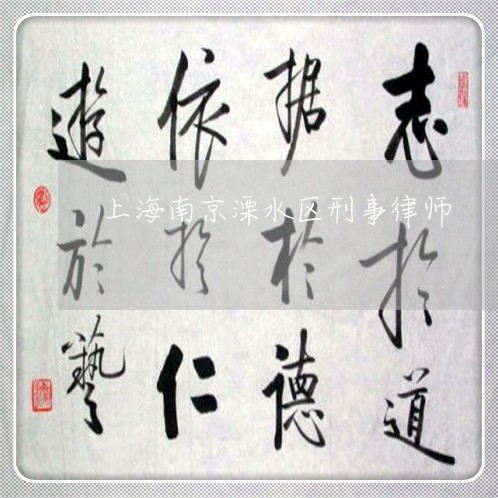 志於道
据於德
依於仁
遊於藝
上海南京溧水区刑事律师